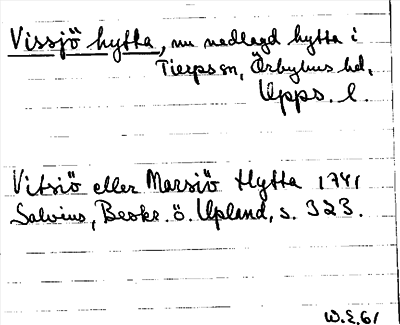 Vissjö hytta, nu nedlagd hytta i
Tierps sn, Örbyhus hd,
Upps. l.
Vitsiö eller Marsiö Hytta 1741
Salvius, Beskr. ö. Upland, s. 323.
W.E. 61